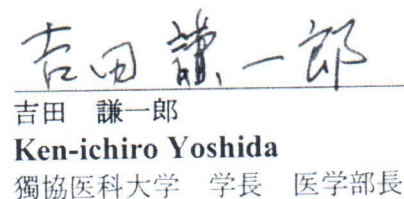 吉田謙一郎
吉田 謙一郎
Ken-ichiro Yoshida
獨協医科大学 学長 医学部長